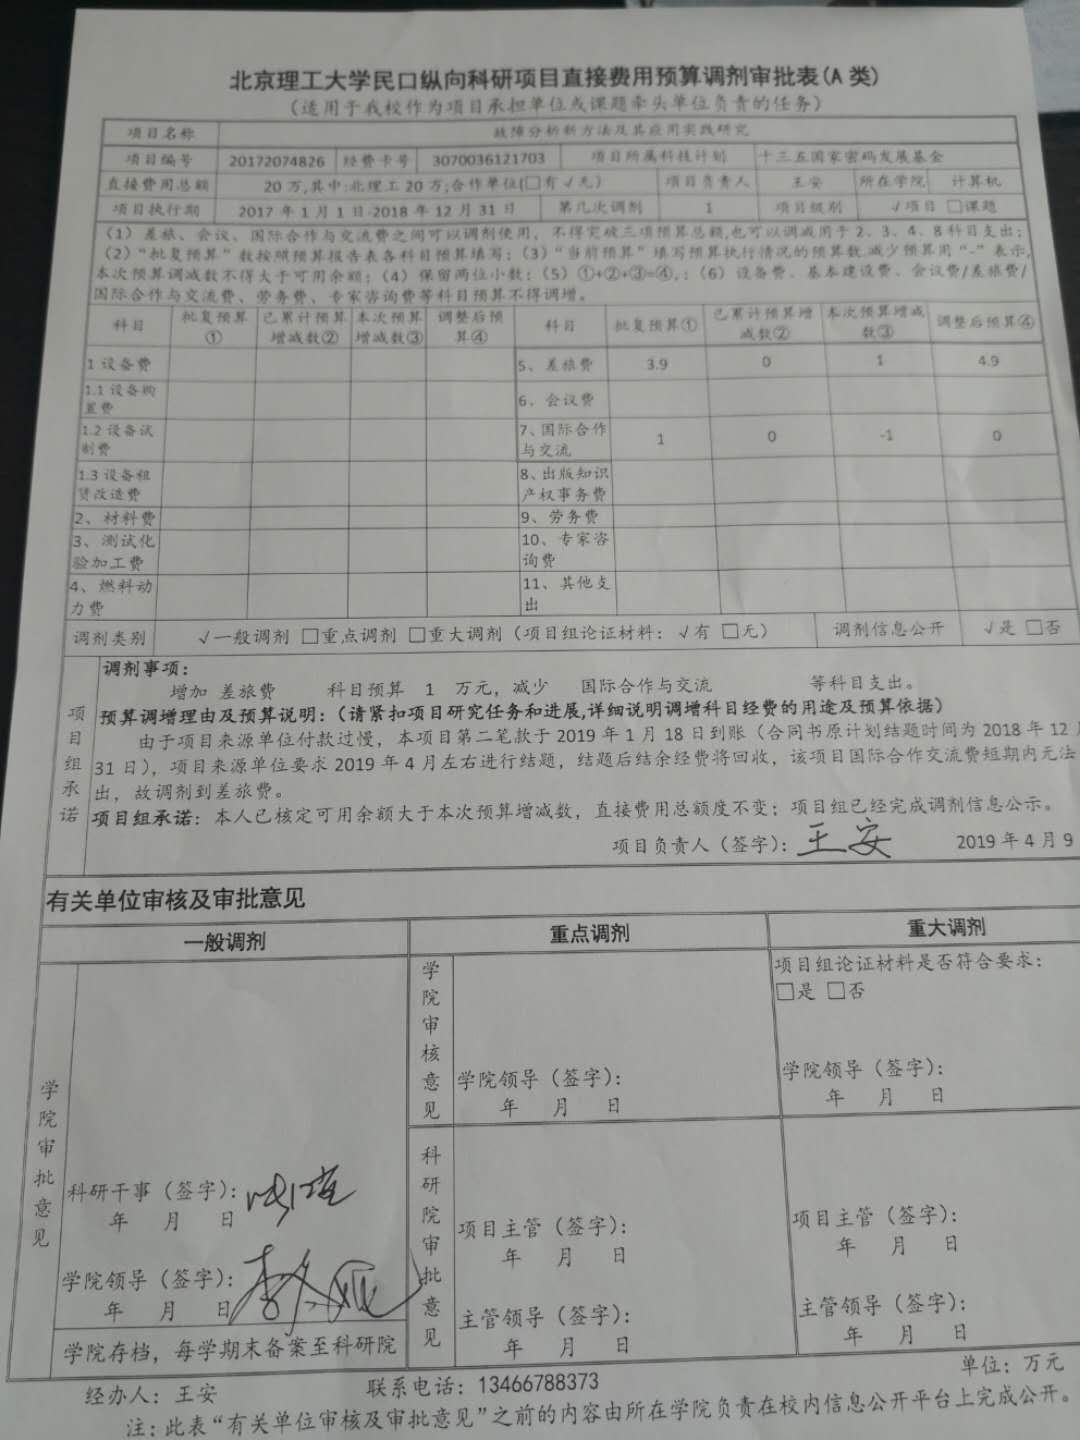 北京理工大学民口纵向科研项目直接费用预算调剂审批表(A 类)
（适用于我校作为项目承担单位或课题牵头单位负责的任务）
项目名称 故障分析新方法及其应用实践研究
项目编号 20172074826 经费卡号 3070036121703 项目所属科技计划 十三五国家密码发展基金
直接费用总额 20 万,其中:北理工 20 万;合作单位(□有 √无） 项目负责人 王安 所在学院 计算机
项目执行期 2017 年 1 月 1 日-2018 年 12 月 31 日 第几次调剂 1 项目级别 √项目 □课题
（1）差旅、会议、国际合作与交流费之间可以调剂使用，不得突破三项预算总额,也可以调减用于 2、3、4、8 科目支出；
（2）“批复预算”数按照预算报告表各科目预算填写；（3）“当前预算”填写预算执行情况的预算数,减少预算用“-”表示,
本次预算调减数不得大于可用余额；（4）保留两位小数；（5）①+②+③=④,；（6）设备费、基本建设费、会议费/差旅费/
国际合作与交流费、劳务费、专家咨询费等科目预算不得调增。
科目 批复预算① 已累计预算增减数② 本次预算增减数③ 调整后预算④ 科目 批复预算① 已累计预算增减数② 本次预算增减数③ 调整后预算④
1 设备费 5、差旅费 3.9 0 1 4.9
1.1 设备购置费 6、会议费
1.2 设备试制费 7、国际合作与交流 1 0 -1 0
1.3 设备租赁改造费 8、出版知识产权事务费
2、材料费 9、劳务费
3、测试化验加工费 10、专家咨询费
4、燃料动力费 11、其他支出
调剂类别 √一般调剂 □重点调剂 □重大调剂（项目组论证材料：√有 □无） 调剂信息公开 √是 □否
项目组承诺
调剂事项：
增加 差旅费 科目预算 1 万元，减少 国际合作与交流 等科目支出。
预算调增理由及预算说明：（请紧扣项目研究任务和进展,详细说明调增科目经费的用途及预算依据）
由于项目来源单位付款过慢，本项目第二笔款于 2019 年 1 月 18 日到账（合同书原计划结题时间为 2018 年 12 月
31 日），项目来源单位要求 2019 年 4 月左右进行结题，结题后结余经费将回收，该项目国际合作交流费短期内无法
出，故调剂到差旅费。
项目组承诺：本人已核定可用余额大于本次预算增减数，直接费用总额度不变；项目组已经完成调剂信息公示。
项目负责人（签字）： 王安 2019 年 4 月 9
有关单位审核及审批意见
一般调剂 重点调剂 重大调剂
学院审批意见
科研干事（签字）：
年 月 日
学院领导（签字）：
年 月 日
学院存档，每学期末备案至科研院
学院审核意见
学院领导（签字）：
年 月 日
科研院审批意见
项目主管（签字）：
年 月 日
主管领导（签字）：
年 月 日
项目组论证材料是否符合要求：
□是 □否
学院领导（签字）：
年 月 日
项目主管（签字）：
年 月 日
主管领导（签字）：
年 月 日
单位：万元
经办人：王安 联系电话：13466788373
注：此表“有关单位审核及审批意见”之前的内容由所在学院负责在校内信息公开平台上完成公开。